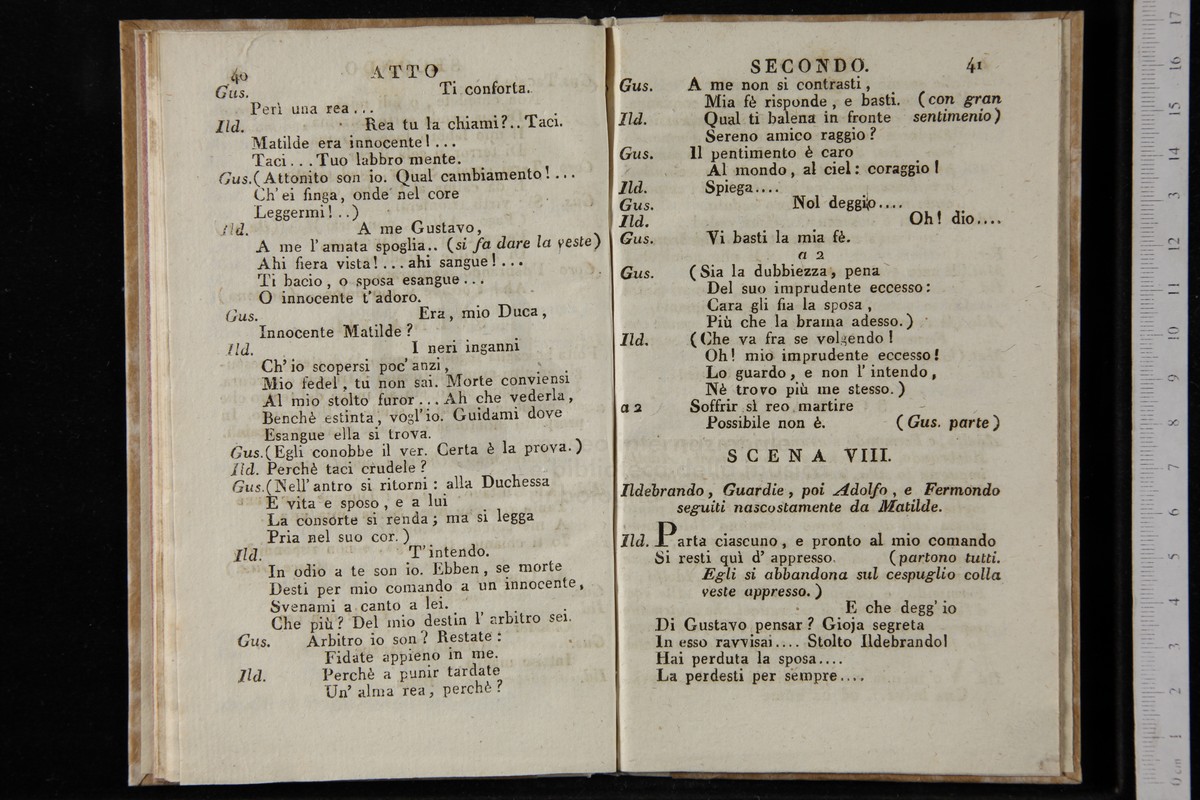 40 ATTO
Gus. Ti conforta.
Perì una rea...
Ild. Rea tu la chiami?.. Taci.
Matilde era innocente!...
Taci... Tuo labbro mente.
Gus.(Attonito son io. Qual cambiamento!...
Ch' ei finga, onde nel core
Leggermi!..)
Ild. A me Gustavo,
A me l'amata spoglia.. (si fa dare la veste)
Ahi fiera vista!...ahi sangue!...
Ti bacio, o sposa esangue...
O innocente t'adoro.
Gus. Era, mio Duca,
Innocente Matilde?
Ild. I neri inganni
Ch' io scopersi poc' anzi,
Mio fedel, tu non sai. Morte conviensi
Al mio stolto furor... Ah che vederla,
Benchè estinta, vogl'io. Guidami dove
Esangue ella si trova.
Gus.(Egli conobbe il ver. Certa è la prova.)
Ild. Perchè taci crudele?
Gus.(Nell' antro si ritorni: alla Duchessa
E vita e sposo, e a lui
La consorte si renda; ma si legga
Pria nel suo cor.)
Ild. T'intendo.
In odio a te son io. Ebben, se morte
Desti per mio comando a un innocente,
Svenami a canto a lei.
Che più? Del mio destin l' arbitro sei.
Gus. Arbitro io son? Restate:
Fidate appieno in me.
Ild. Perchè a punir tardate
Un' alma rea, perchè?
SECONDO. 41
Gus. A me non si contrasti,
Mia fè risponde, e basti. (con gran
Ild. Qual ti balena in fronte sentimenio)
Sereno amico raggio?
Gus. Il pentimento è caro
Al mondo, al ciel: coraggio!
Ild. Spiega....
Gus. Nol deggio....
Ild. Oh! dio....
Gus. Vi basti la mia fè.
a 2
Gus. (Sia la dubbiezza, pena
Del suo imprudente eccesso:
Cara gli fia la sposa,
Più che la brama adesso.)
Ild. (Che va fra se volgendo!
Oh! mio imprudente eccesso!
Lo guardo, e non l' intendo,
Nè trovo più me stesso.)
a 2 Soffrir sì reo martire
Possibile non è. (Gus. parte)
SCENA VIII.
Ildebrando, Guardie, poi Adolfo, e Fermondo
seguiti nascostamente da Matilde.
Ild. Parta ciascuno, e pronto al mio comando
Si resti quì d' appresso. (partono tutti.
Egli si abbandona sul cespuglio colla
veste appresso.)
E che degg' io
Di Gustavo pensar? Gioja segreta
In esso ravvisai.... Stolto Ildebrando!
Hai perduta la sposa....
La perdesti per sempre....